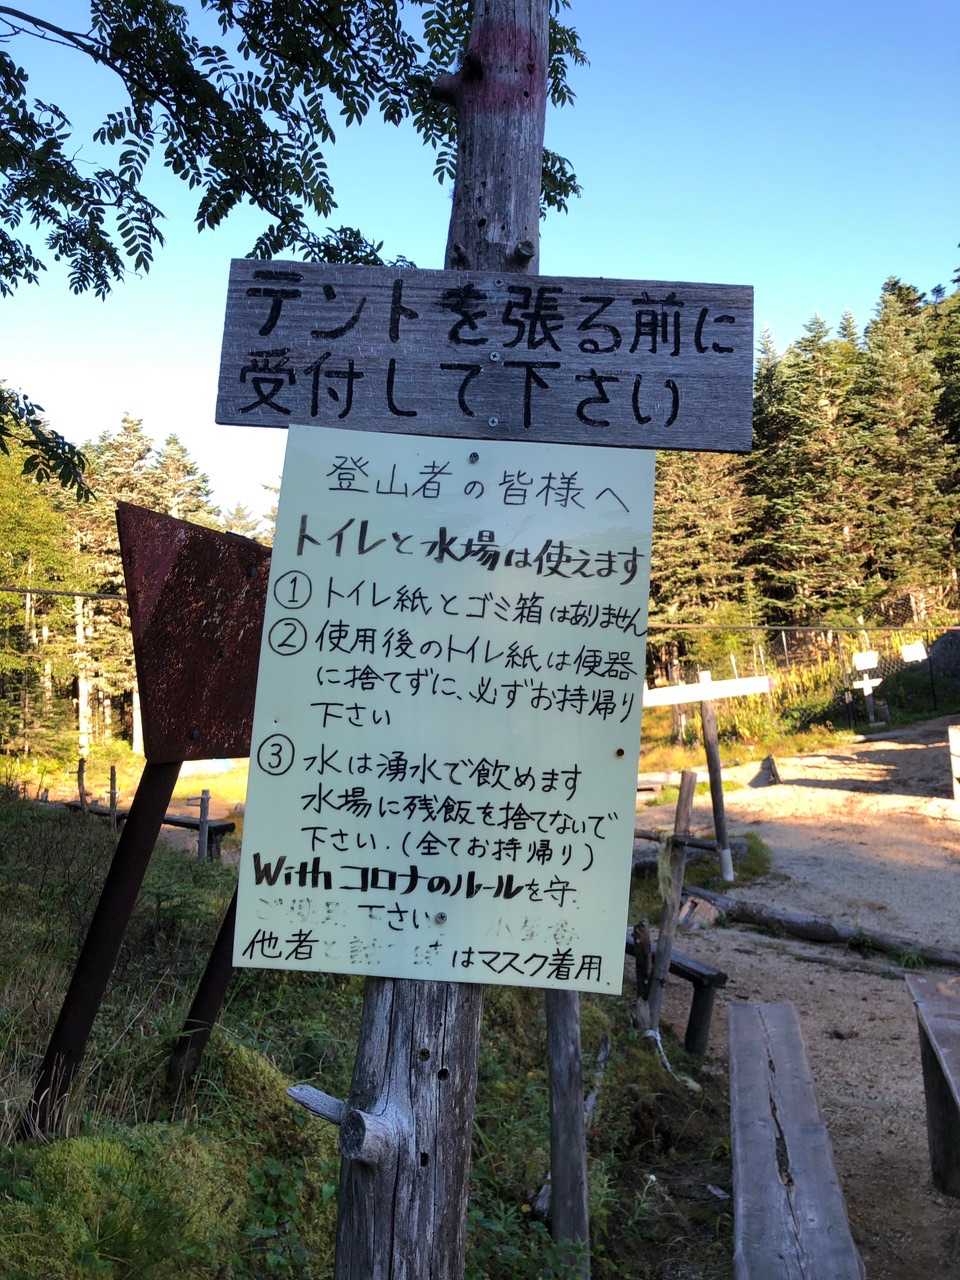 テントを張る前に
受付して下さい
登山者の皆様へ
トイレと水場は使えます
① トイレ紙とゴミ箱はありません
② 使用後のトイレ紙は便器
に捨てずに、必ずお持帰り
下さい
③ 水は湧水で飲めます
水場に残飯を捨てないで
下さい.(全てお持帰り)
With コロナのルールを守
下さい
他者と 時はマスク着用.